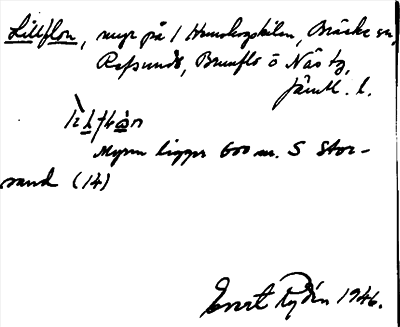 Lillflon, myr på / Hunbergskölen, Bräcke sn,
Refsunds, Brunflo o Näs tg,
Jämtl. l.
Myren ligger 600 m. S Stor-
sund (14)
Evert Rydén 1946.